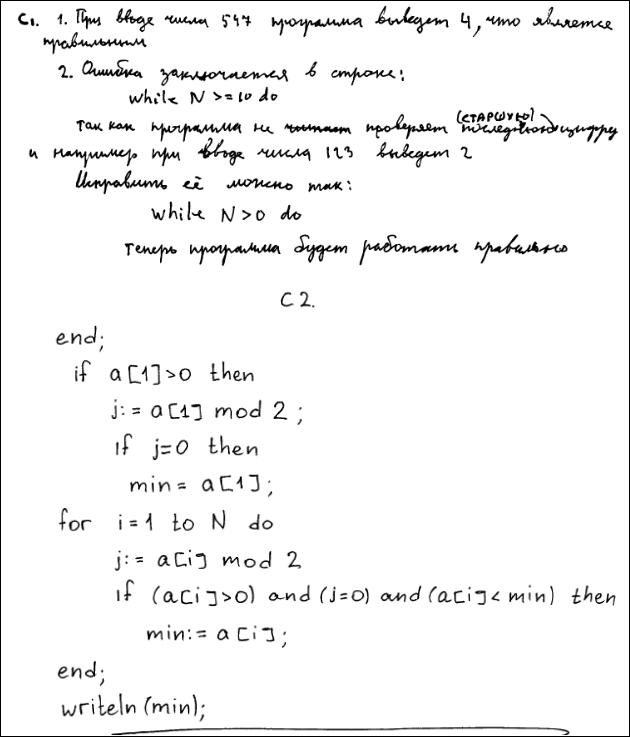 С1. 1. При вводе числа 547 программа выведет 4, что является
правильным
2. Ошибка заключается в строке:
while N >= 10 do
так как программа не проверяет (СТАРШУЮ) последнюю цифру
и например при вводе числа 123 выведет 2
Исправить её можно так:
while N > 0 do
теперь программа будет работать правильно
С 2.
end;
if a[1]>0 then
j:= a[1] mod 2 ;
if j=0 then
min = a[1];
for i = 1 to N do
j:= a[i] mod 2
if (a[i]>0) and (j=0) and (a[i]< min) then
min:= a[i];
end;
writeln (min);